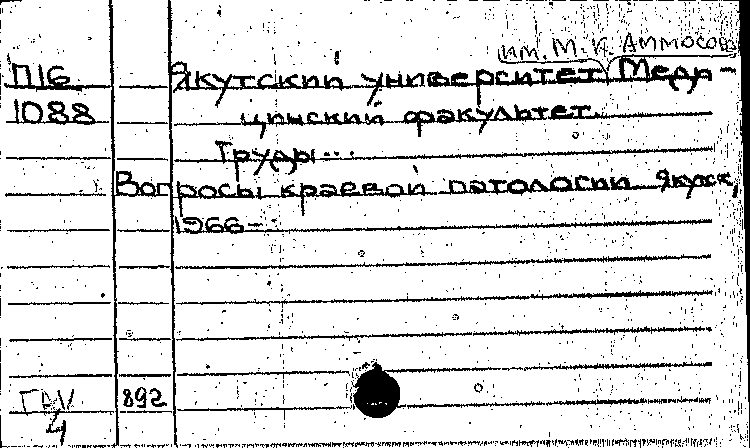 им. М. К. Аммосова
П16 Якутский университет Меди-
1088 цинский факультет.
Труды...
Вопросы краевой патологии. Якутск,
1966-
892
4